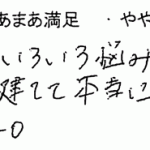 あまあ満足 ・やや
いろいろ悩み
建てて本当に